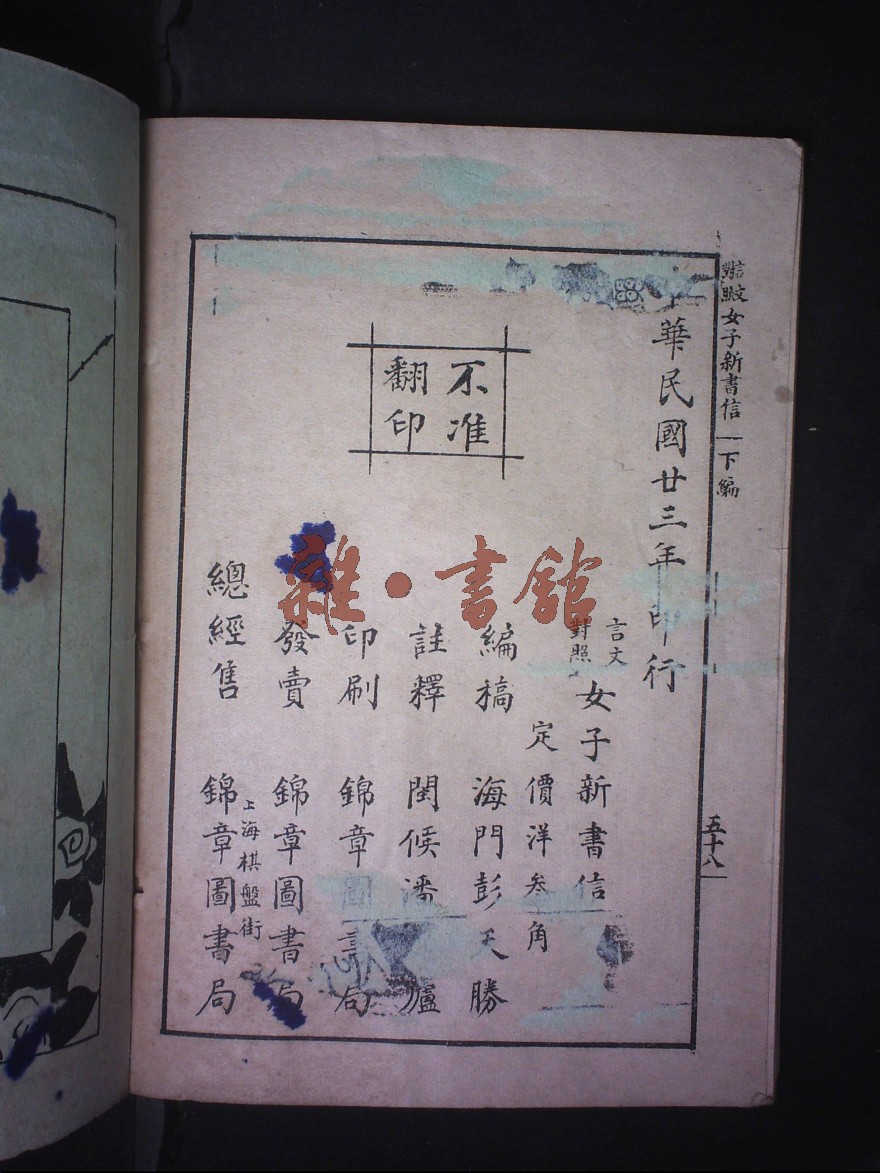 言文對照女子新書信 下編
五十八
華民國廿三年印行
言文對照 女子新書信
定價洋叁角
編稿 海門彭天勝
註釋 閩侯潘 廬
印刷 錦章圖書局
發賣 錦章圖書局
上海棋盤街
總經售 錦章圖書局
不准
翻印
雜·書館